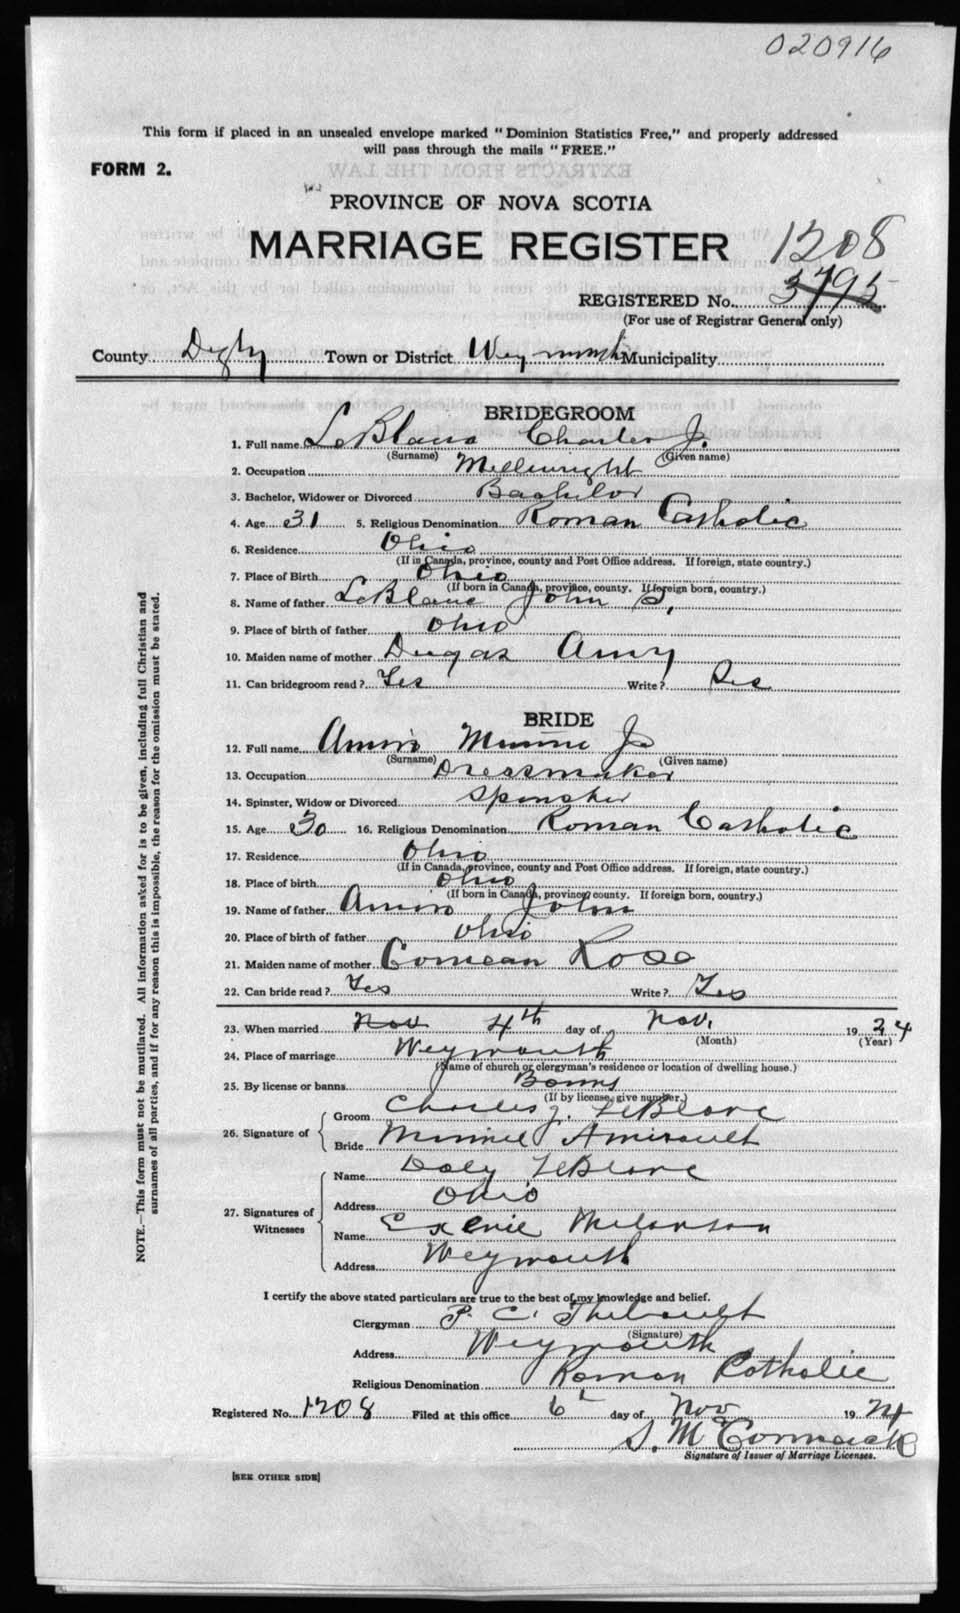 020916
This form if placed in an unsealed envelope marked "Dominion Statistics Free," and properly addressed
will pass through the mails "FREE."
FORM 2.
EXTRACTS FROM THE LAW
PROVINCE OF NOVA SCOTIA
MARRIAGE REGISTER 1208
REGISTERED No. 3795
(For use of Registrar General only)
County Digby Town or District Weymouth Municipality
BRIDEGROOM
1. Full name LeBlanc Charles J.
(Surname) (Given name)
2. Occupation Millwright
3. Bachelor, Widower or Divorced Bachelor
4. Age 31 5. Religious Denomination Roman Catholic
6. Residence Ohio
(If in Canada, province, county and Post Office address. If foreign, state country.)
7. Place of Birth Ohio
(If born in Canada, province, county. If foreign born, country.)
8. Name of father LeBlanc John S.
9. Place of birth of father Ohio
10. Maiden name of mother Dugas Amy
11. Can bridegroom read? Yes Write? Yes
BRIDE
12. Full name Amiro Minnie Jo
(Surname) (Given name)
13. Occupation Dressmaker
14. Spinster, Widow or Divorced Spinster
15. Age 30 16. Religious Denomination Roman Catholic
17. Residence Ohio
(If in Canada, province, county and Post Office address. If foreign, state country.)
18. Place of birth Ohio
(If born in Canada, province, county. If foreign born, country.)
19. Name of father Amiro John
20. Place of birth of father Ohio
21. Maiden name of mother Comeau Rose
22. Can bride read? Yes Write? Yes
23. When married Nov 4th day of Nov. 1924
(Month) (Year)
24. Place of marriage Weymouth
(Name of church or clergyman's residence or location of dwelling house.)
25. By license or banns Banns
(If by license, give number.)
26. Signature of Groom Charles J. LeBlanc
Bride Minnie Amirault
27. Signatures of Witnesses Name Doley LeBlanc
Address Ohio
Name Exenie Melanson
Address Weymouth
I certify the above stated particulars are true to the best of my knowledge and belief.
Clergyman P. C. Thibault
(Signature)
Address Weymouth
Religious Denomination Roman Catholic
Registered No. 1208 Filed at this office 6 day of Nov 1924
S. McCormack
Signature of Issuer of Marriage Licenses.
[SEE OTHER SIDE]
NOTE.—This form must not be mutilated. All information asked for is to be given, including full Christian and
surnames of all parties, and if for any reason this is impossible, the reason for the omission must be stated.